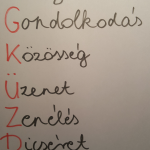 Gondolkodás
Közösség
Üzenet
Zenélés
Dicséret